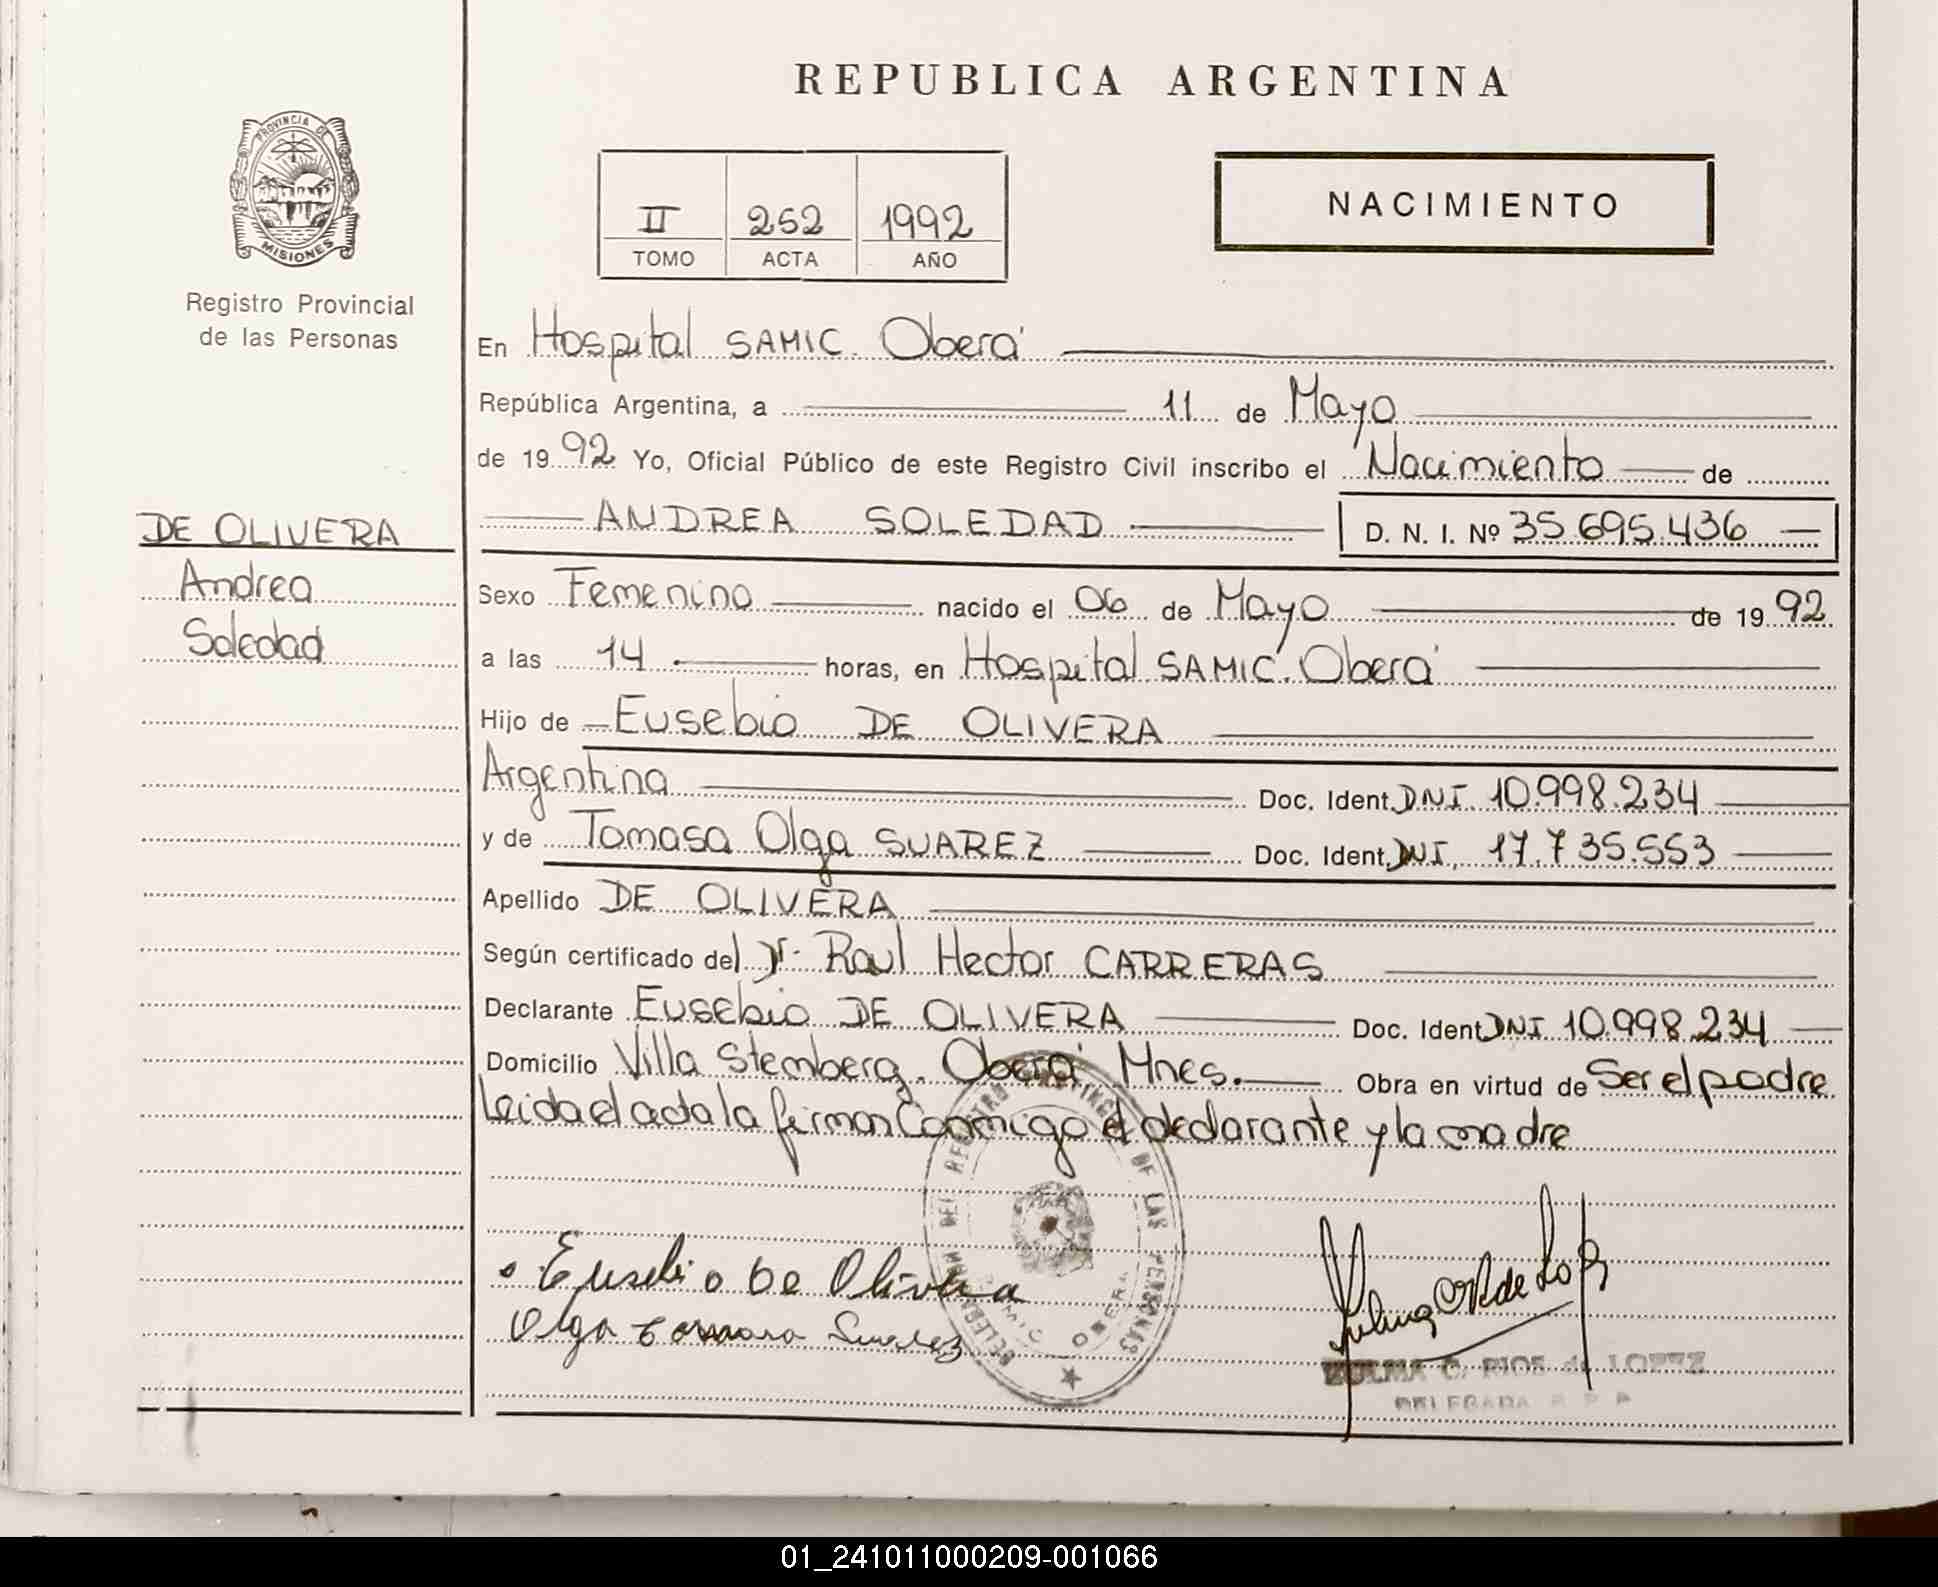 REPUBLICA ARGENTINA
PROVINCIA DE
MISIONES
Registro Provincial
de las Personas
II 252 1992
TOMO ACTA AÑO
NACIMIENTO
En Hospital SAMIC. Oberá
República Argentina, a 11 de Mayo
de 1992 Yo, Oficial Público de este Registro Civil inscribo el Nacimiento de
ANDREA SOLEDAD D. N. I. Nº 35.695.436
DE OLIVERA
Andrea
Soledad
Sexo Femenino nacido el 06 de Mayo de 1992
a las 14 horas, en Hospital SAMIC. Oberá
Hijo de Eusebio DE OLIVERA
Argentina Doc. Ident. DNI 10.998.234
y de Tomasa Olga SUAREZ Doc. Ident. DNI, 17.735.553
Apellido DE OLIVERA
Según certificado del Dr. Raul Hector CARRERAS
Declarante Eusebio DE OLIVERA Doc. Ident DNI 10.998.234
Domicilio Villa Stemberg. Oberá, Mnes. Obra en virtud de Ser el padre
Leida el acta la firman Conmigo el declarante y la madre
DEL REGISTRO PROVINCIAL DE LAS PERSONAS
OBERA
Eusebio De Olivera
Olga Tomasa Suarez
ZULMA C. RIOS de LOPEZ
DELEGADA R. P. P.
01_241011000209-001066